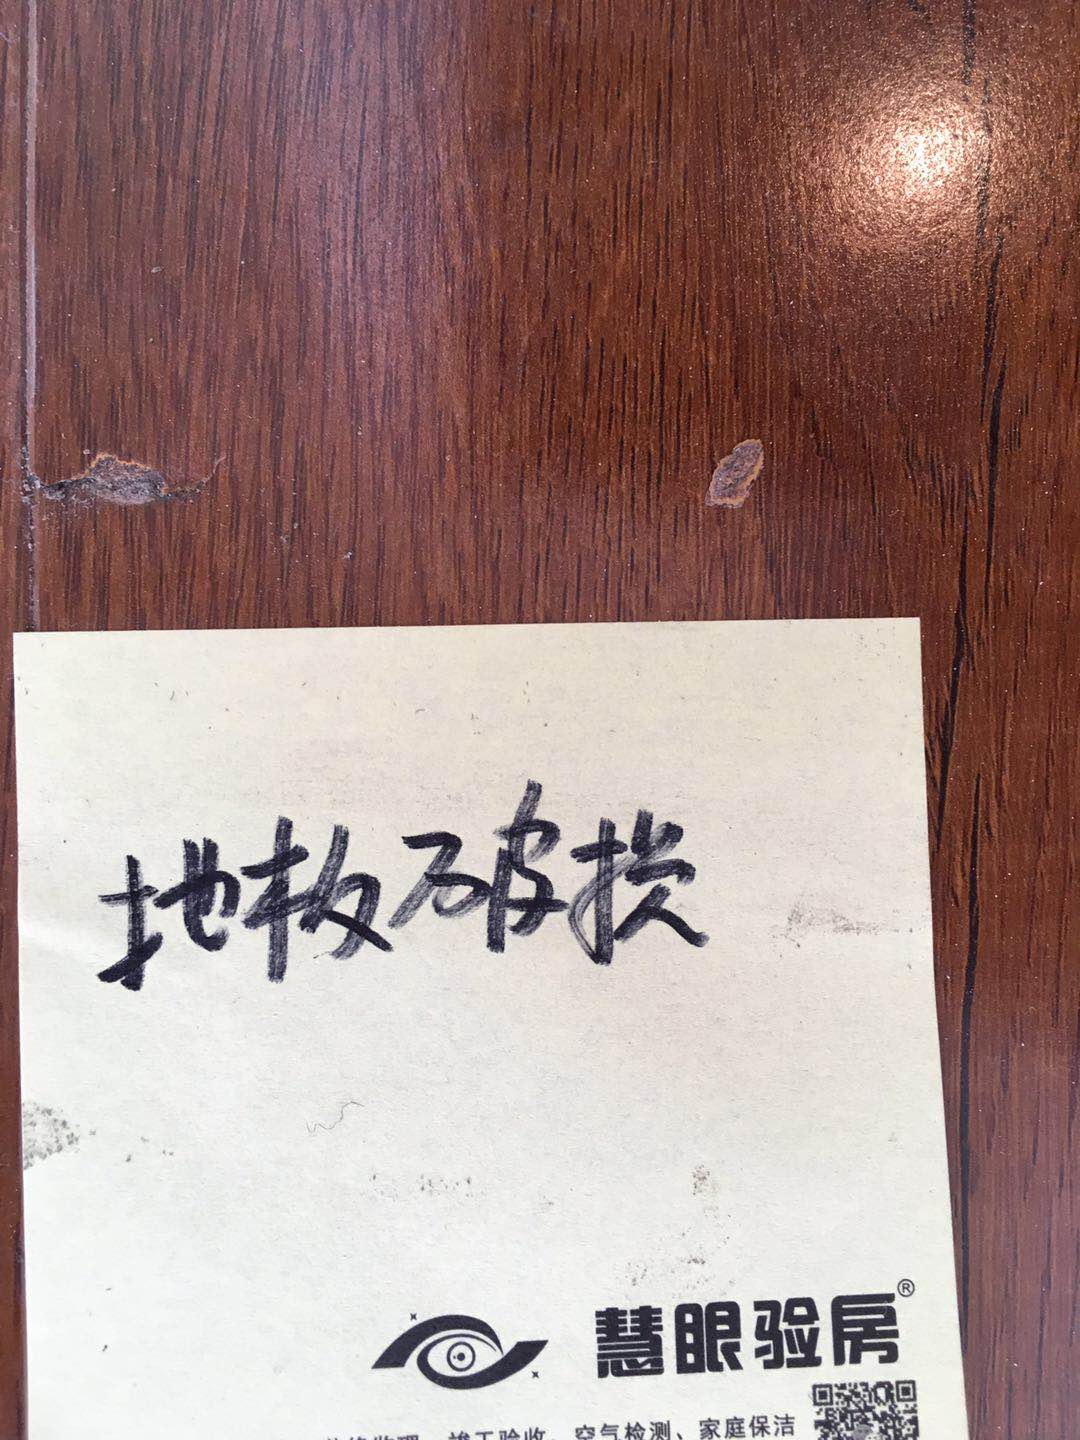 地板破损
慧眼验房®
监理、竣工验收、空气检测、家庭保洁